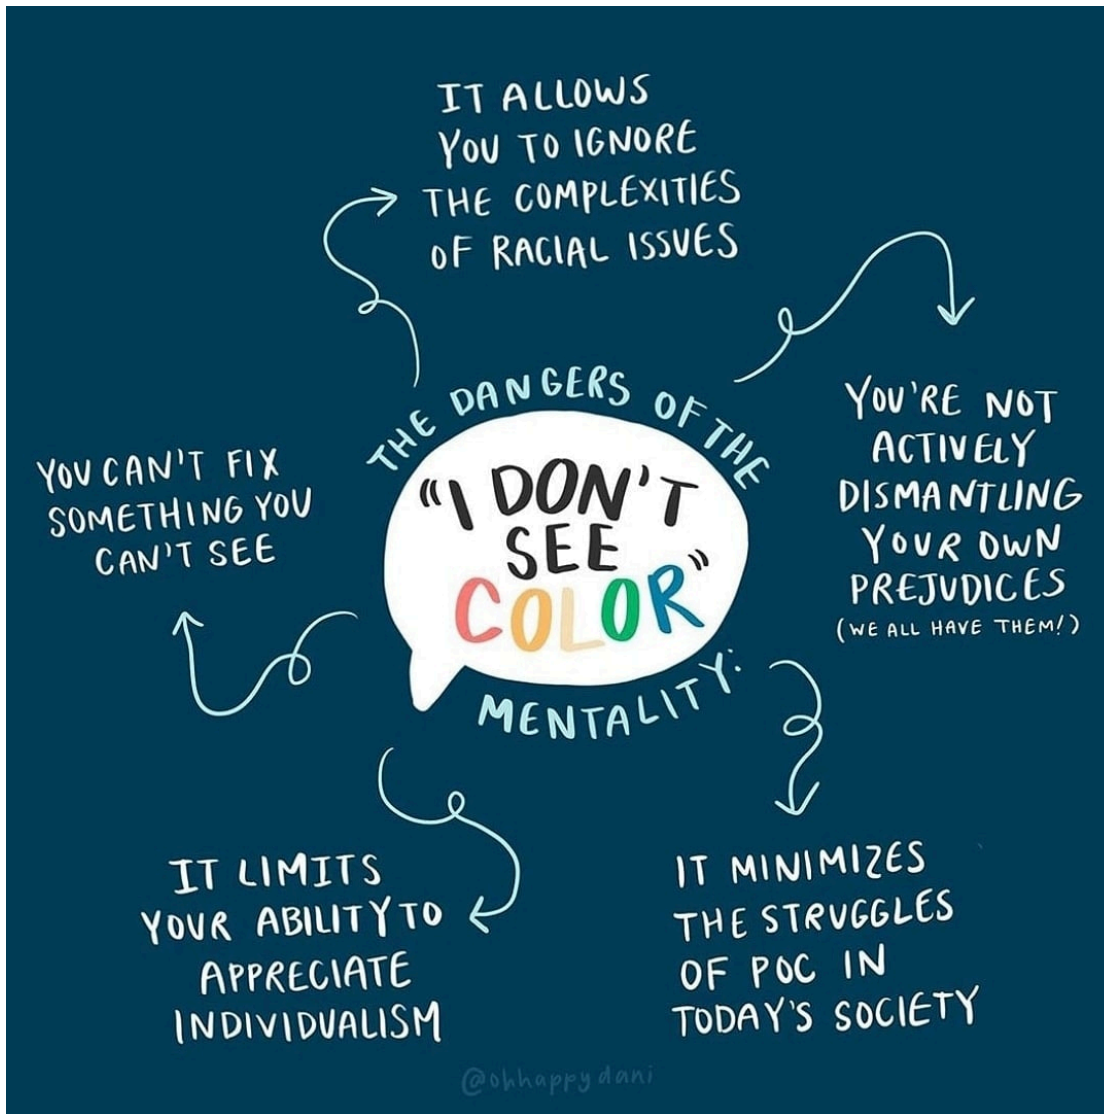 THE DANGERS OF THE
"I DON'T
SEE
COLOR"
MENTALITY:
IT ALLOWS
YOU TO IGNORE
THE COMPLEXITIES
OF RACIAL ISSUES
YOU'RE NOT
ACTIVELY
DISMANTLING
YOUR OWN
PREJUDICES
(WE ALL HAVE THEM!)
IT MINIMIZES
THE STRUGGLES
OF POC IN
TODAY'S SOCIETY
IT LIMITS
YOUR ABILITY TO
APPRECIATE
INDIVIDUALISM
YOU CAN'T FIX
SOMETHING YOU
CAN'T SEE
@ohhappydani